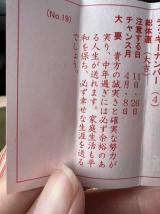 ッキーナンバー (4)
総体運 (大吉)
注意する日 11日・26日
チャンス月 4月・8月
大要 貴方の誠実と確実な努力が
実り、中年過ぎには必ず余裕のあ
る人生が送れます。家庭生活も平
和を保ち、必ず幸せな生涯を送る
でしょう。
(No.19)